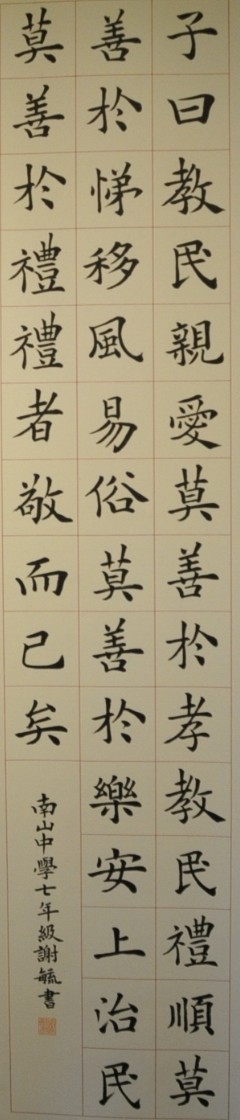 子曰教民親愛莫善於孝教民禮順莫
善於悌移風易俗莫善於樂安上治民
莫善於禮禮者敬而已矣
南山中學七年級謝毓書